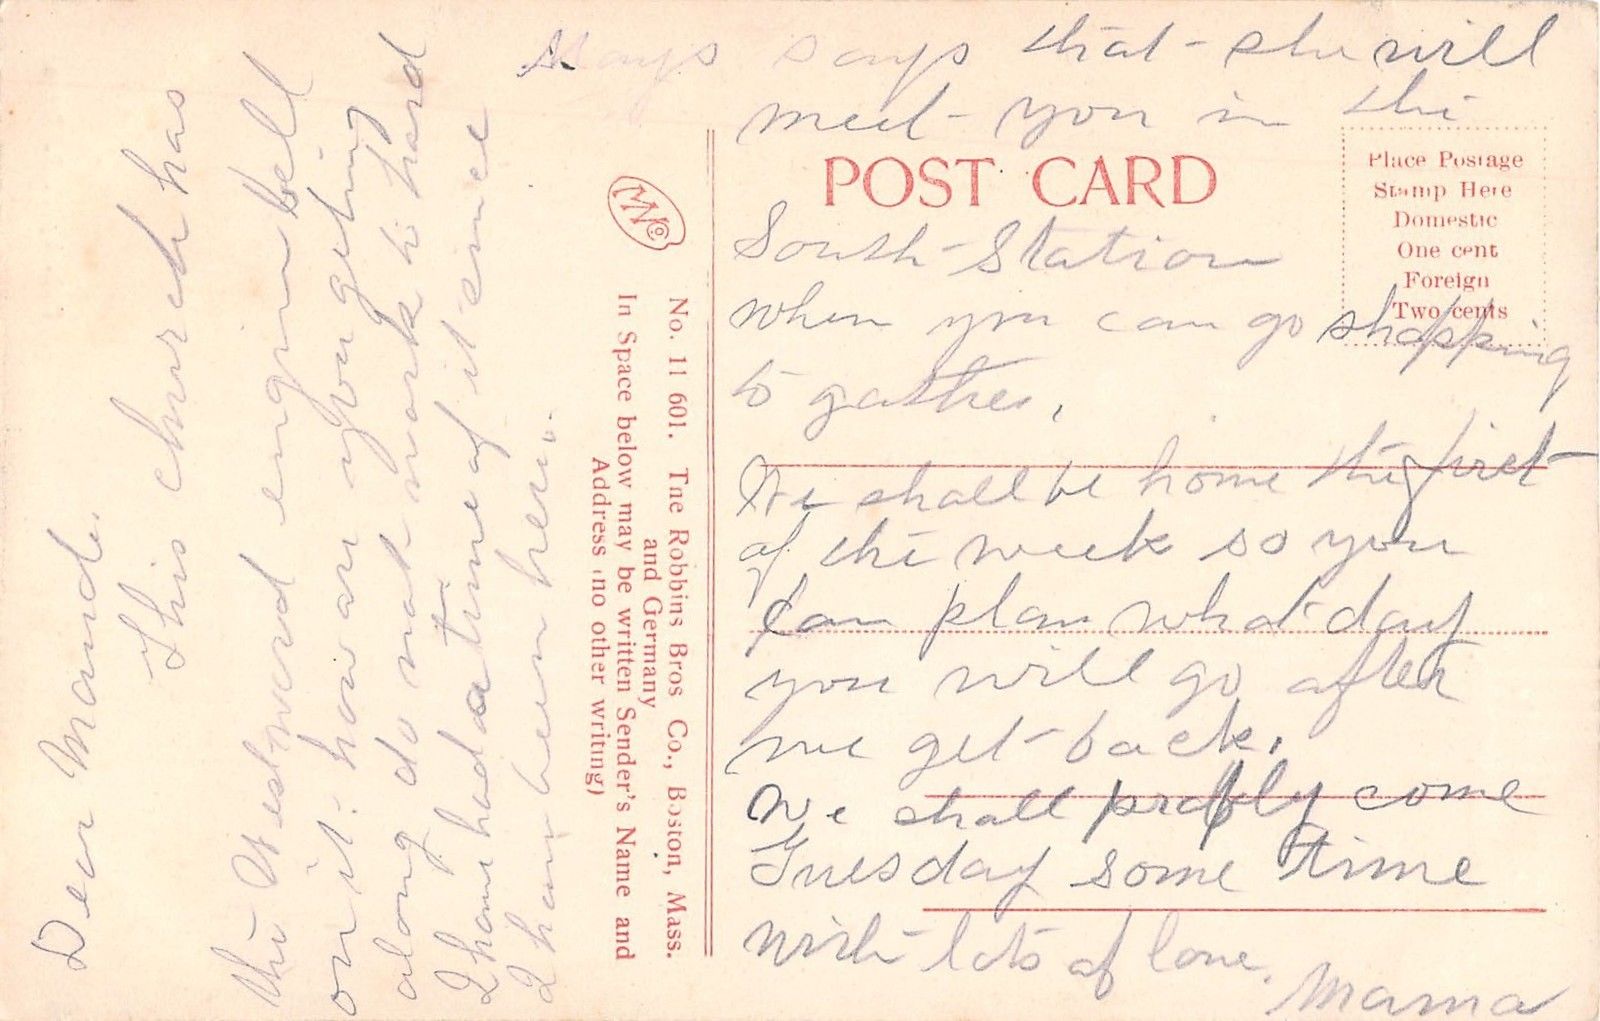 Dear Maude.
This church has
the Westward engine bell
on it. how are you getting
along do not work to hard
I have had a time of it since
I have been here.
No. 11 601. The Robbins Bros Co., Boston, Mass.
and Germany
In Space below may be written Sender's Name and
Address (no other writing)
MNCo
says that she will
meet you in the
POST CARD
Place Postage
Stamp Here
Domestic
One cent
Foreign
Two cents
South Station
when you can go shopping
to gather.
We shall be home the first
of the week so you
can plan what day
you will go after
we get back.
We shall probly come
Tuesday some time
with lots of love.
Mama